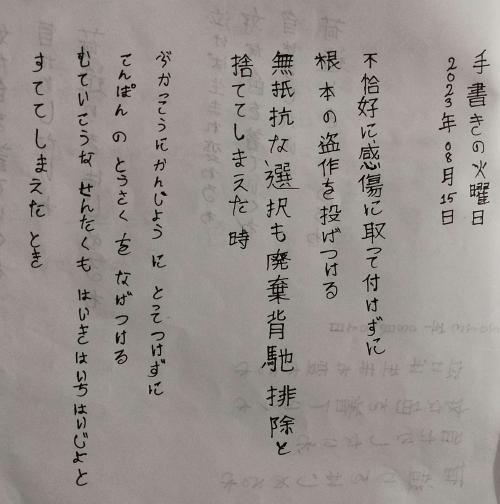 手書きの火曜日
2023年08月15日
不恰好に感傷に取って付けずに
根本の盗作を投げつける
無抵抗な選択も廃棄背馳排除と
捨ててしまえた時
ぶかっこうにかんじょうに とってつけずに
てんぽんのとうさくをなげつける
むていこうなせんたくもはいきはいちはいじょと
すててしまえたとき